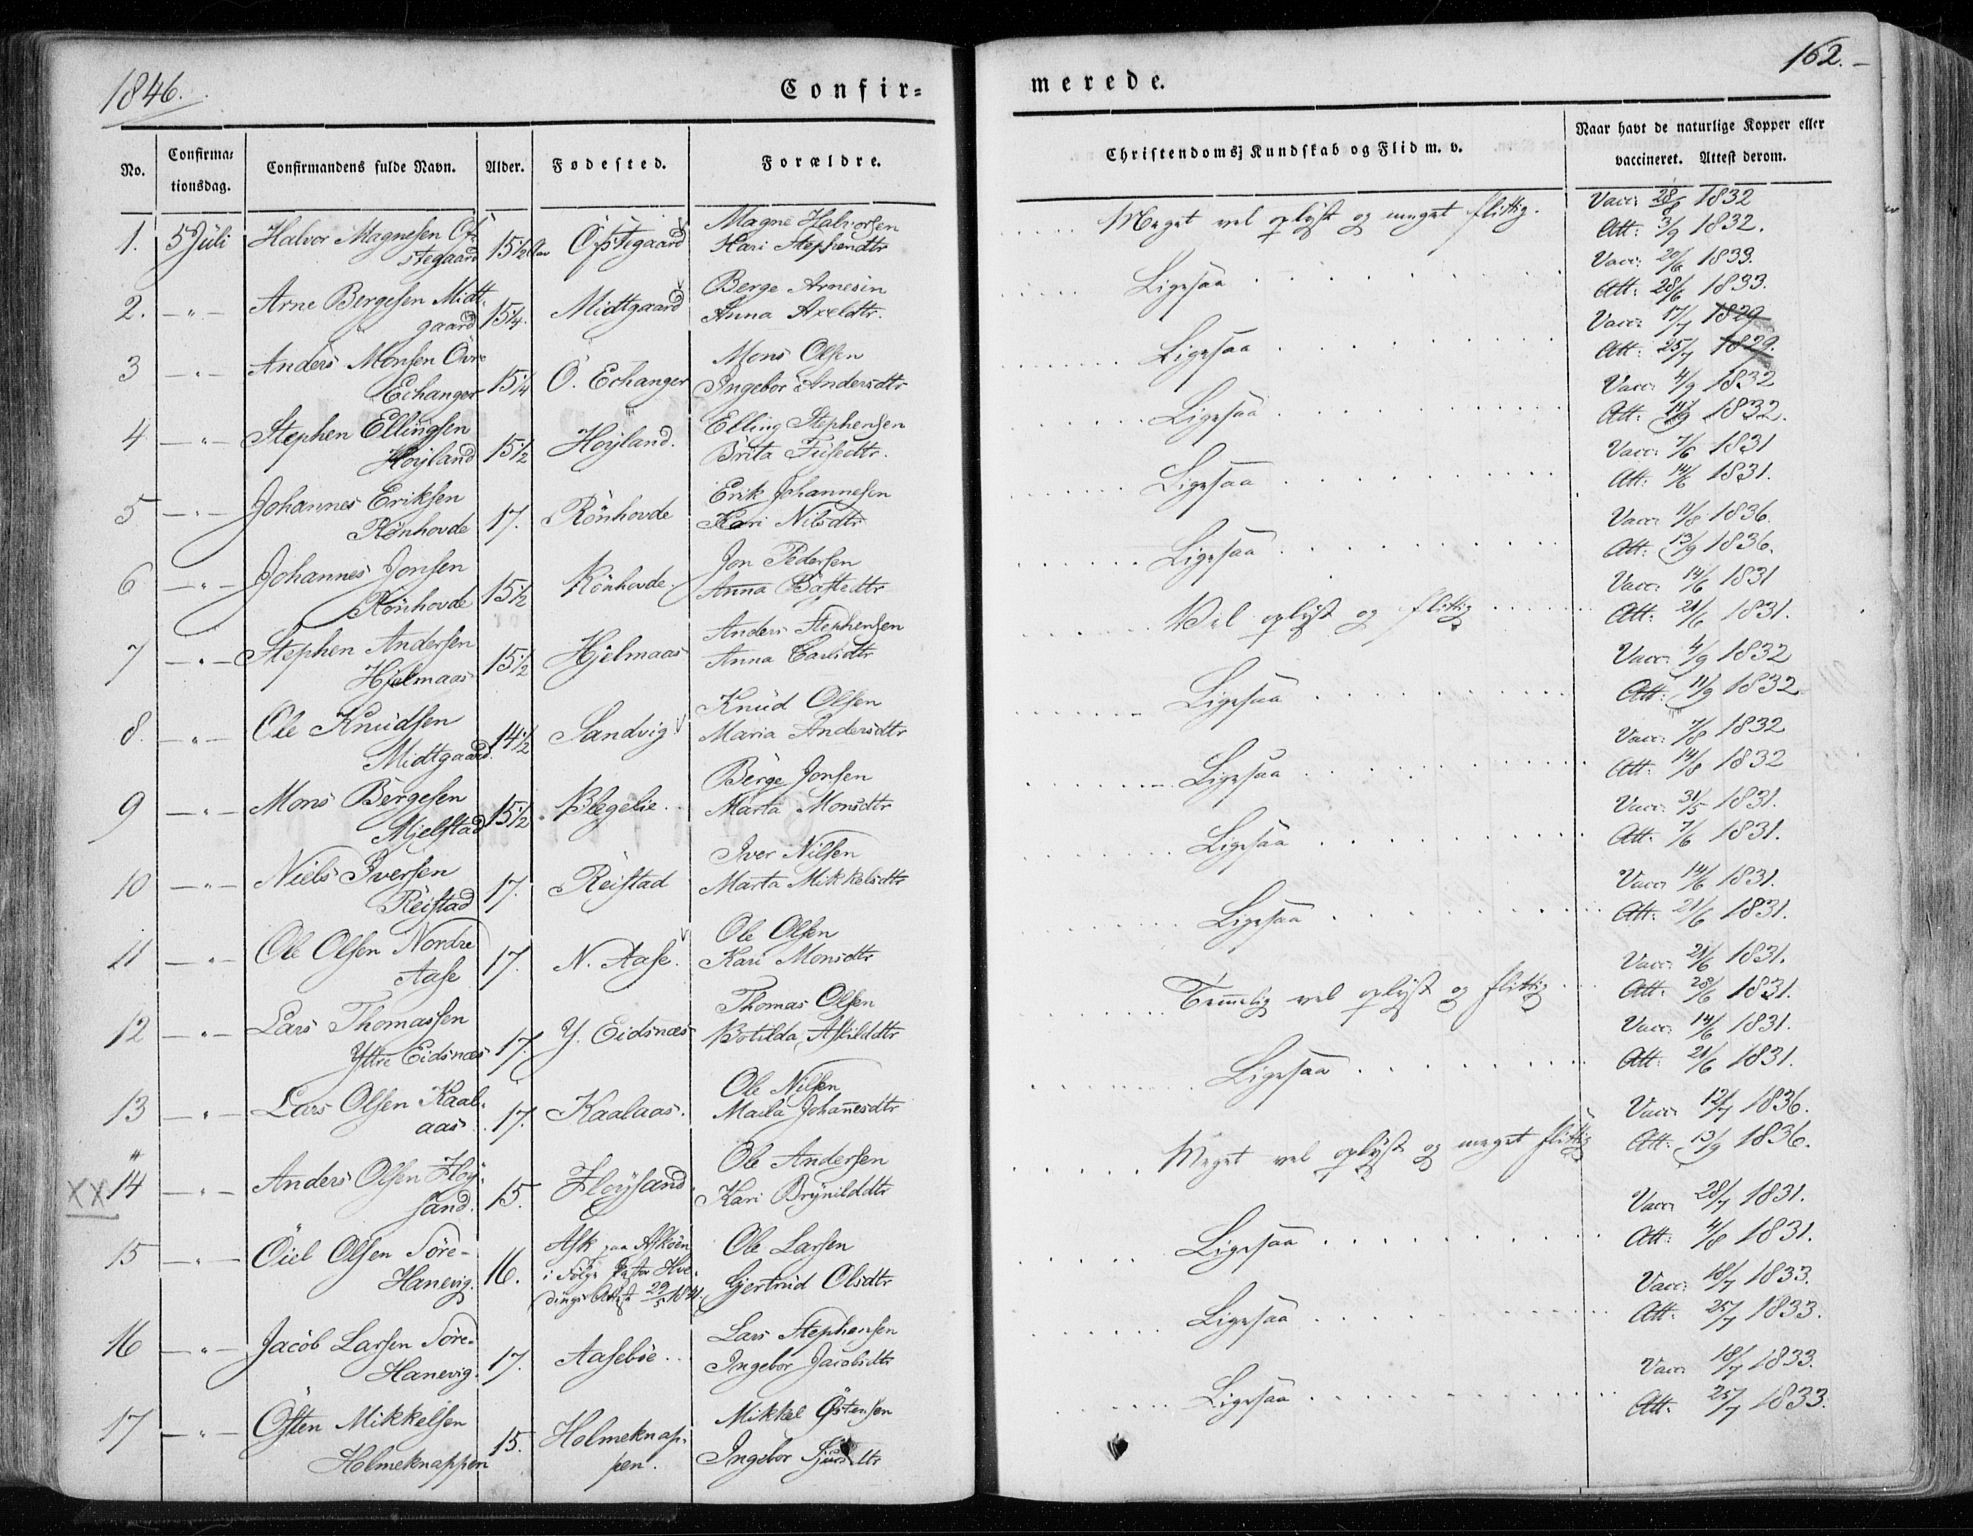 1846.
Confir-
No.
Confirma-
tionsdag.
Confirmandens fulde Navn.
Alder.
Fødested.
Forældre.
1. 5 Juli Halvor Magnesen Öf-
stegaard 15½ Aar Öfstegaard Magne Halvorsen
Kari Stephensdtr
2. -"- Arne Bergesen Midt-
gaard 15¼. Midtgaard Berge Arnesen
Anna Axeldtr.
3 -"- Anders Monsen Övre
Echanger 15¼ Ö. Echanger Mons Olsen
Ingebor Andersdtr
4 -"- Stephen Ellingsen
Höyland 15½ Höyland. Elling Stephensen
Brita
5 -"- Johannes Eriksen
Rönhovde 17. Rönhovde Erik Johannesen
Kari Nilsdtr.
6 -"- Johannes Jonsen
Rönhovde 15½ Rönhovde. Jon Pedersen
Anna
7 -"- Stephen Andersen
Hjelmaas 15½ Hjelmaas Anders Stephensen
Anna
8. -"- Ole Knudsen
Midtgaard. 14½ Sandvig Knud Olsen
Maria Andersdtr
9 -"- Mons Bergesen
Mjelstad 15½ Blegelie. Berge Jonsen
Marta Monsdtr
10 -"- Niels Iversen
Reistad 17. Reistad Iver Nilsen
Marta Mikkelsdtr
11 -"- Ole Olsen Nordre
Aase 17. N. Aase. Ole Olsen
Kari Monsdtr
12 -"- Lars Thomassen
Yttre Eidsnæs 17. Y. Eidsnæs Thomas Olsen
Botilda Askilddtr
13 -"- Lars Olsen Kaal-
aas. 17. Kaalaas. Ole Nilsen
Johannesdtr
XX 14 -"- Anders Olsen Flöy-
sand. 15. Flöysand. Ole Andersen
Kari Brynilddtr
15 -"- Öiel Olsen Söre-
Hanevig. 16. Ask paa Askøen
i Følge Pastor
Attest 29/5 Ole Larsen
Gjertrud Olsdtr
16 -"- Jacob Larsen Söre-
Hanevig. 17. Aaseböe.. Lars Stephensen
Ingebor Jacobsdtr
17 -"- Östen Mikkelsen
Holmeknappen 15. Holmeknap-
pen. Mikkel Östensen
Ingebor
162.-
merede.
Christendoms Kundskab og Flid m. v.
Naar havt de naturlige Kopper eller
vaccineret. Attest derom.
Meget vel oplyst og meget flittig. Vacc: 28/8 1832
Att: 3/9 1832.
Ligesaa Vacc: 20/6 1833.
Att: 28/6 1833.
Ligesaa Vacc: 17/7 1829
Att: 25/7 1829.
Ligesaa Vacc: 4/9 1832
Att: 11/9 1832.
Ligesaa Vacc: 7/6 1831
Att: 14/6 1831.
Ligesaa Vacc: 11/8 1836.
Att: 13/9 1836.
Vel oplyst og flittig Vacc: 14/6 1831
Att: 21/6 1831.
Ligesaa Vacc: 4/9 1832
Att: 11/9 1832.
Ligesaa Vacc: 7/8 1832
Att: 14/8 1832
Ligesaa Vacc: 31/5 1831.
Att: 7/6 1831.
Ligesaa Vacc: 14/6 1831.
Att: 21/6 1831.
Temmelig vel oplyst og flittig Vacc: 21/6 1831.
Att: 28/6 1831.
Ligesaa Vacc: 14/6 1831.
Att: 21/6 1831.
Meget vel oplyst og meget flittig Vacc: 12/7 1836.
Att: 13/9 1836.
Ligesaa Vacc: 28/7 1831.
Att: 4/8 1831.
Ligesaa Vacc: 18/7 1833.
Att: 25/7 1833.
Ligesaa Vacc: 18/7 1833.
Att: 25/7 1833.